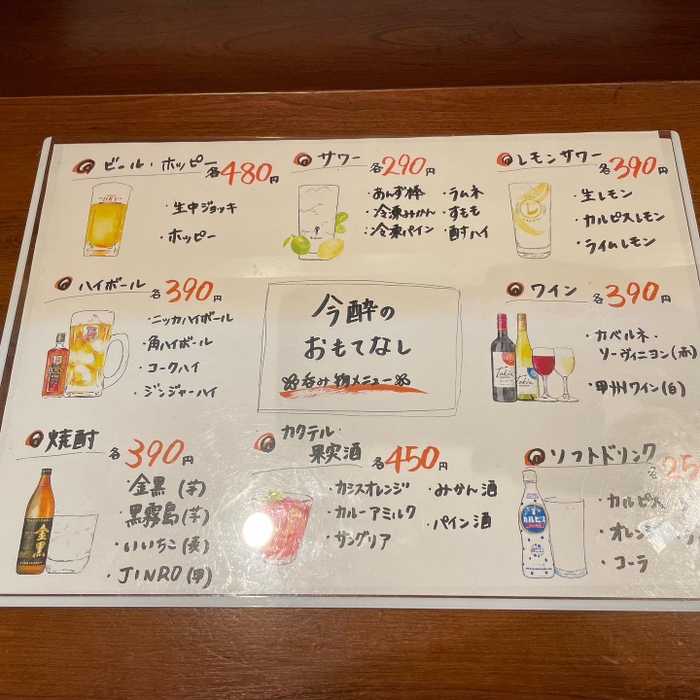 ビール・ホッピー 各480円
・生中ジョッキ
・ホッピー
サワー 各290円
・あんず棒 ・ラムネ
・冷凍みかん ・すもも
・冷凍パイン ・酎ハイ
レモンサワー 各390円
・生レモン
・カルピスレモン
・ライムレモン
ハイボール 各390円
・ニッカハイボール
・角ハイボール
・コークハイ
・ジンジャーハイ
今酔の
おもてなし
呑み物メニュー
ワイン 各390円
・カベルネ・
ソーヴィニヨン(赤)
・甲州ワイン(白)
焼酎 各390円
・金黒(芋)
・黒霧島(芋)
・いいちこ(麦)
・JINRO(甲)
カクテル・
果実酒 各450円
・カシスオレンジ ・みかん酒
・カルーアミルク ・パイン酒
・サングリア
ソフトドリンク
各25
・カルピス
・オレン
・コーラ
金黒
カルピス